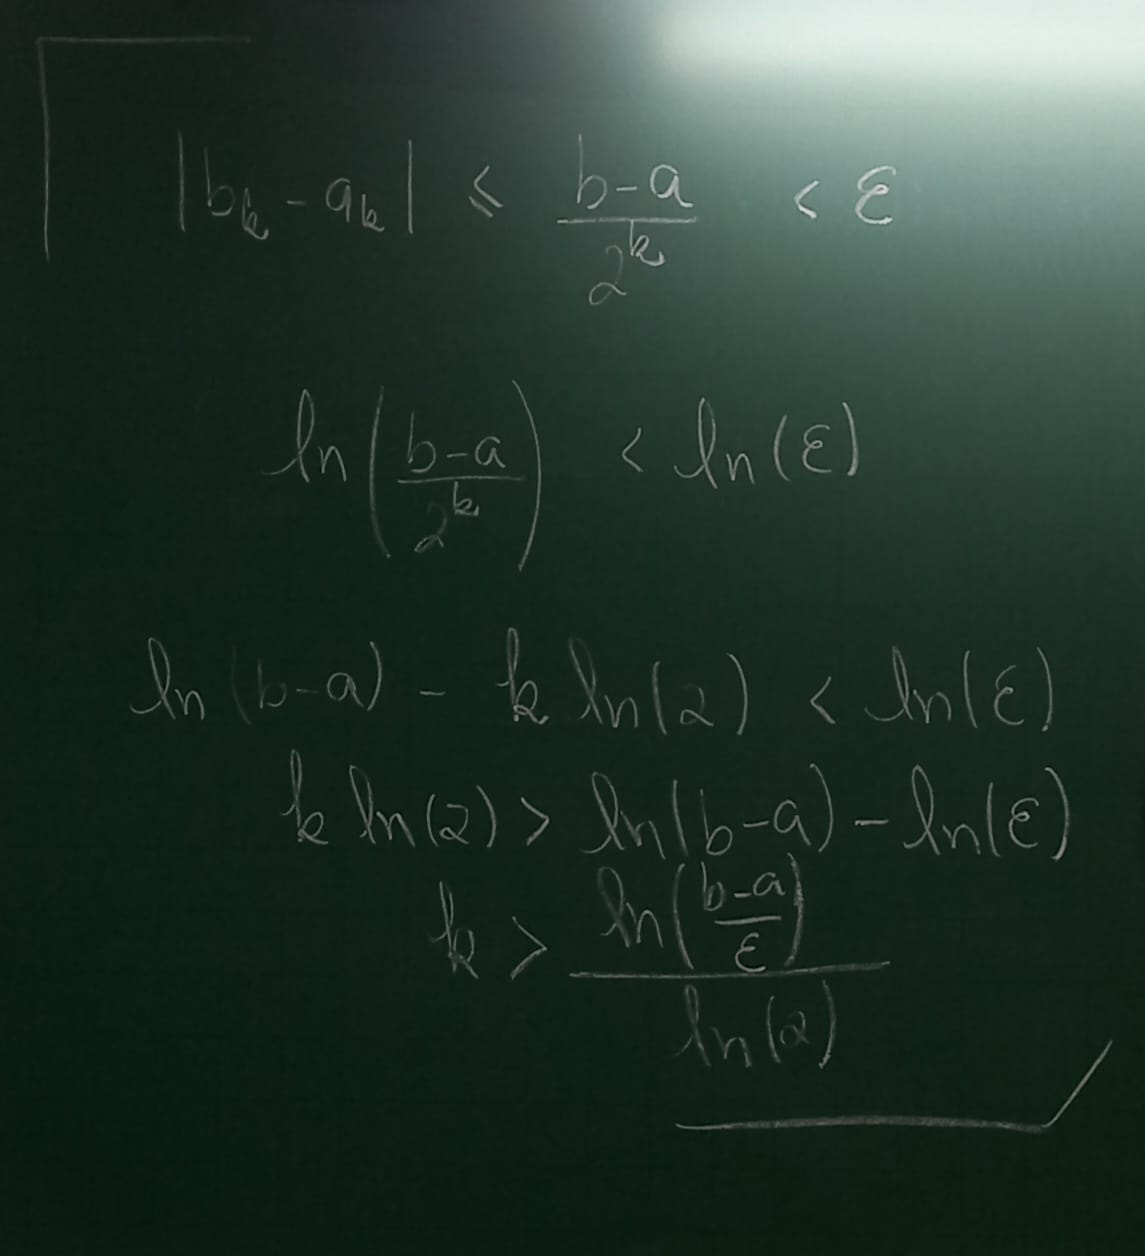 |b_k - a_k| ≤ \frac{b-a}{2^k} < ε
ln(\frac{b-a}{2^k}) < ln(ε)
ln(b-a) - k ln(2) < ln(ε)
k ln(2) > ln(b-a) - ln(ε)
k > \frac{ln(\frac{b-a}{ε})}{ln(2)}